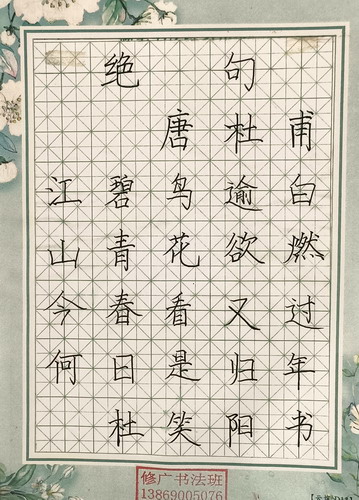 绝句
唐 杜甫
江碧鸟逾白
山青花欲燃
今春看又过
何日是归年
杜笑阳书
修广书法班
13869005076